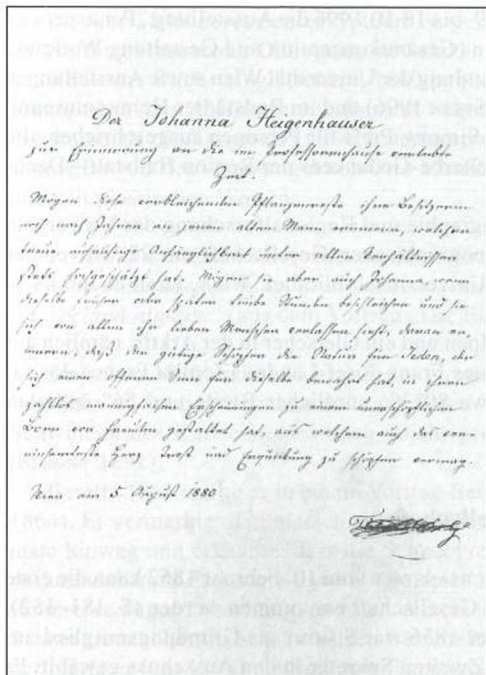 Der Johanna Heigenhauser
zur Erinnerung an die im Professorenhause verlebte
Zeit.
Mögen diese verbleichenden Pflanzenreste ihre Besitzerin
noch nach Jahren an jenen alten Mann erinnern, welcher
treue aufrichtige Anhänglichkeit unter allen Verhältnissen
stets hochgeschätzt hat. Mögen sie aber auch Johanna, wenn
dieselbe früher oder später trübe Stunden beschleichen und sie
sich von allen ihr lieben Menschen verlassen sieht, daran er-
innern, daß der gütige Schöpfer die Natur für Jeden, der
sich einen offenen Sinn für dieselbe bewahrt hat, in ihren
zahllos mannigfachen Erscheinungen zu einem unerschöpflichen
Born von Freuden gestaltet hat, aus welchem auch das ver-
einsamteste Herz Trost und Erquickung zu schöpfen vermag.
Wien am 5 August 1880